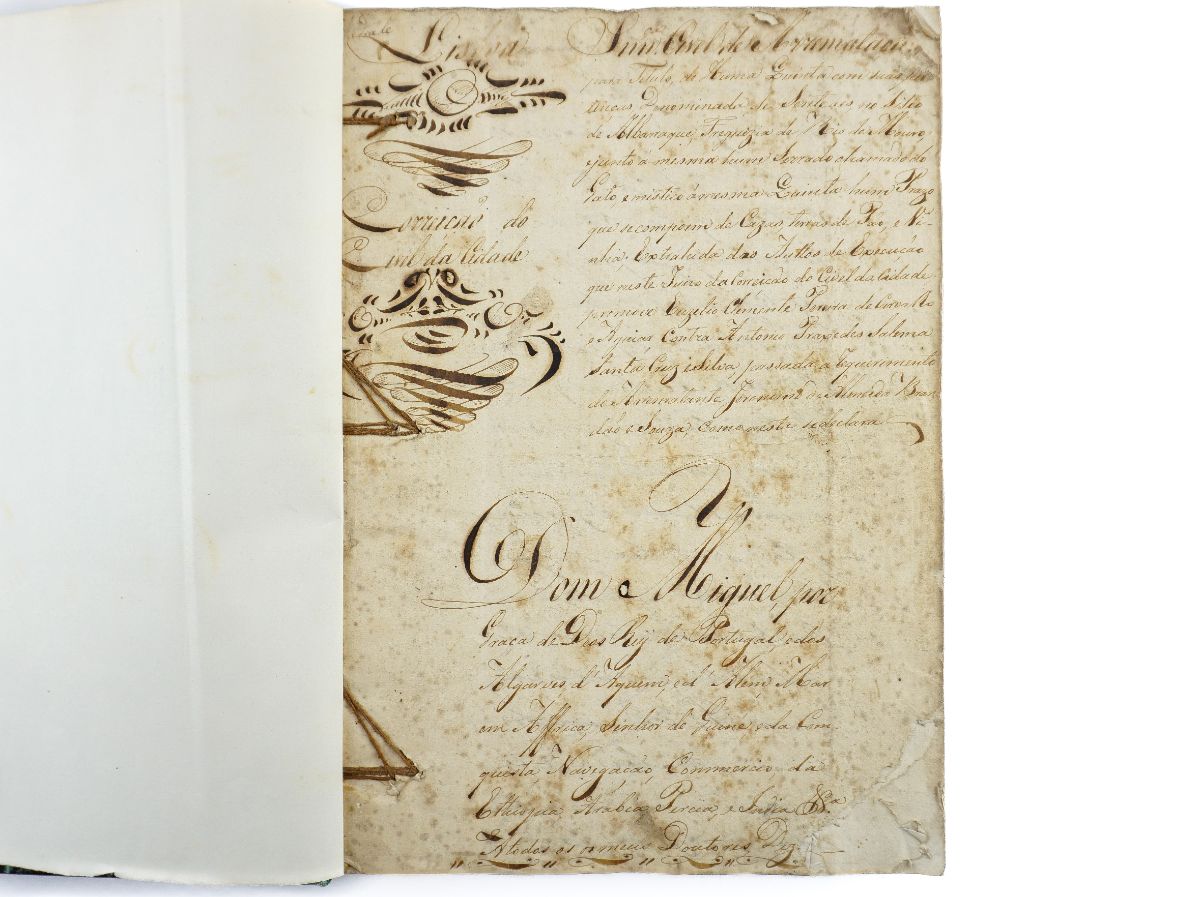 Lisboa
Correição do
Civel da Cidade
Civel de Arremataçaõ
para Titulo, de huma Quinta com suas per
tenças Denominada de no Sitio
de Albarraque, Freguezia de Rio de Mouro
ejunto á mesma hum Serrado chamado do
Gato, emistico á mesma Quinta hum Prazo
que secompoem de Cazas terras de Paõ, e Vi-
nha, Extrahida dos Auttos de Execucaõ
que neste Juizo da Correicaõ do Civel da Cidade
promove Clemente Pereira de Carvalho
e Aguiar Contra Antonio Praxedes Salema
Santa Cruz eSilva passada a Requerimento
do Arrematante Jeronimo de Almeida Bran
daõ e Souza, Como neste sedeclara
Dom Miguel, por
Graca de Deos Rey de Portugal, edos
Algarves d'Aquem, ed'Alem Mar
em Affrica, Senhor de Guine, eda Con
questa, Navigacaõ, Commercio da
Ethiopia, Arabia, Percia, e India &.ª
Atodos os meus Doutores Dez.